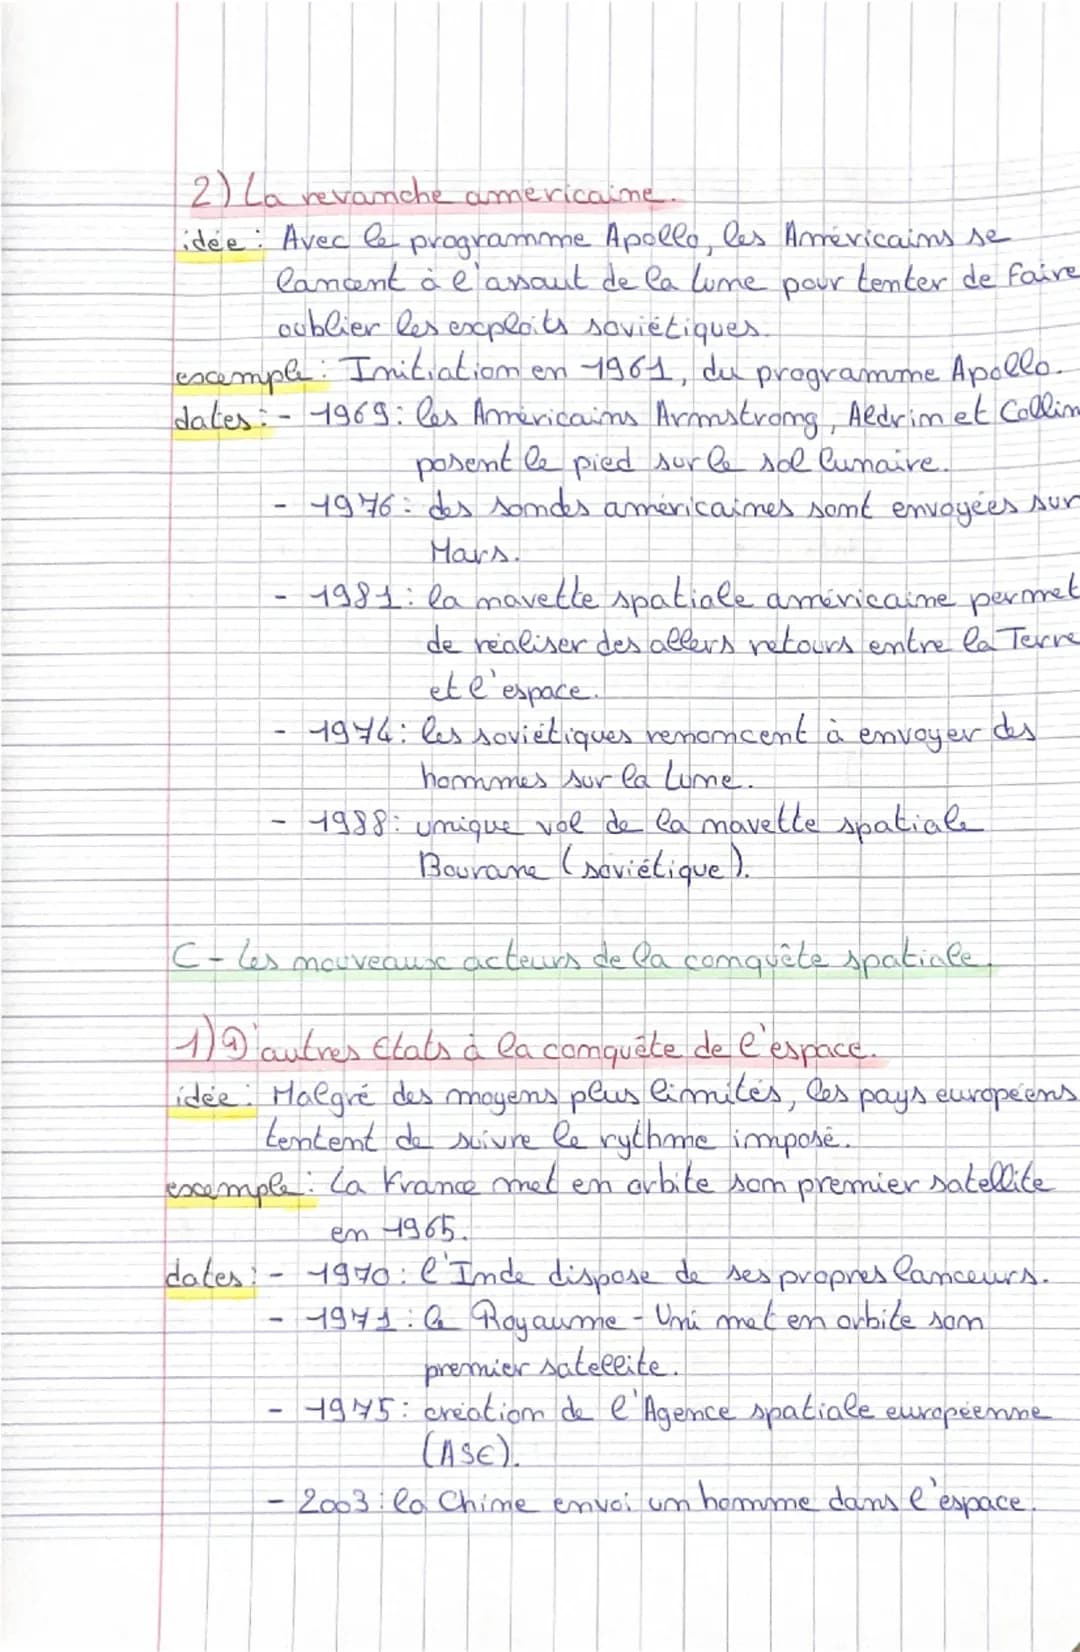 2) La revanche américaine.
idée : Avec le programme Apollo, les Américains se
lancent à l'assaut de la lune pour tenter de faire
oublier les exploits soviétiques.
exemple : Initiation en 1961, du programme Apollo.
dates : - 1969 : les Américains Armstrong, Aldrin et Collin
posent le pied sur le sol lunaire.
- 1976 : des sondes américaines sont envoyées sur
Mars.
- 1981 : la navette spatiale américaine permet
de réaliser des allers retours entre la Terre
et l'espace.
- 1974 : les soviétiques renoncent à envoyer des
hommes sur la lune.
- 1988 : unique vol de la navette spatiale
Bourane (soviétique).
C - Les nouveaux acteurs de la conquête spatiale.
1) D'autres Etats à la conquête de l'espace.
idée : Malgré des moyens plus limités, les pays européens
tentent de suivre le rythme imposé.
exemple : La France met en orbite son premier satellite
en 1965.
dates : - 1970 : l'Inde dispose de ses propres lanceurs.
- 1971 : le Royaume - Uni met en orbite son
premier satellite.
- 1975 : création de l'Agence spatiale européenne
(ASE).
- 2003 : la Chine envoi un homme dans l'espace.